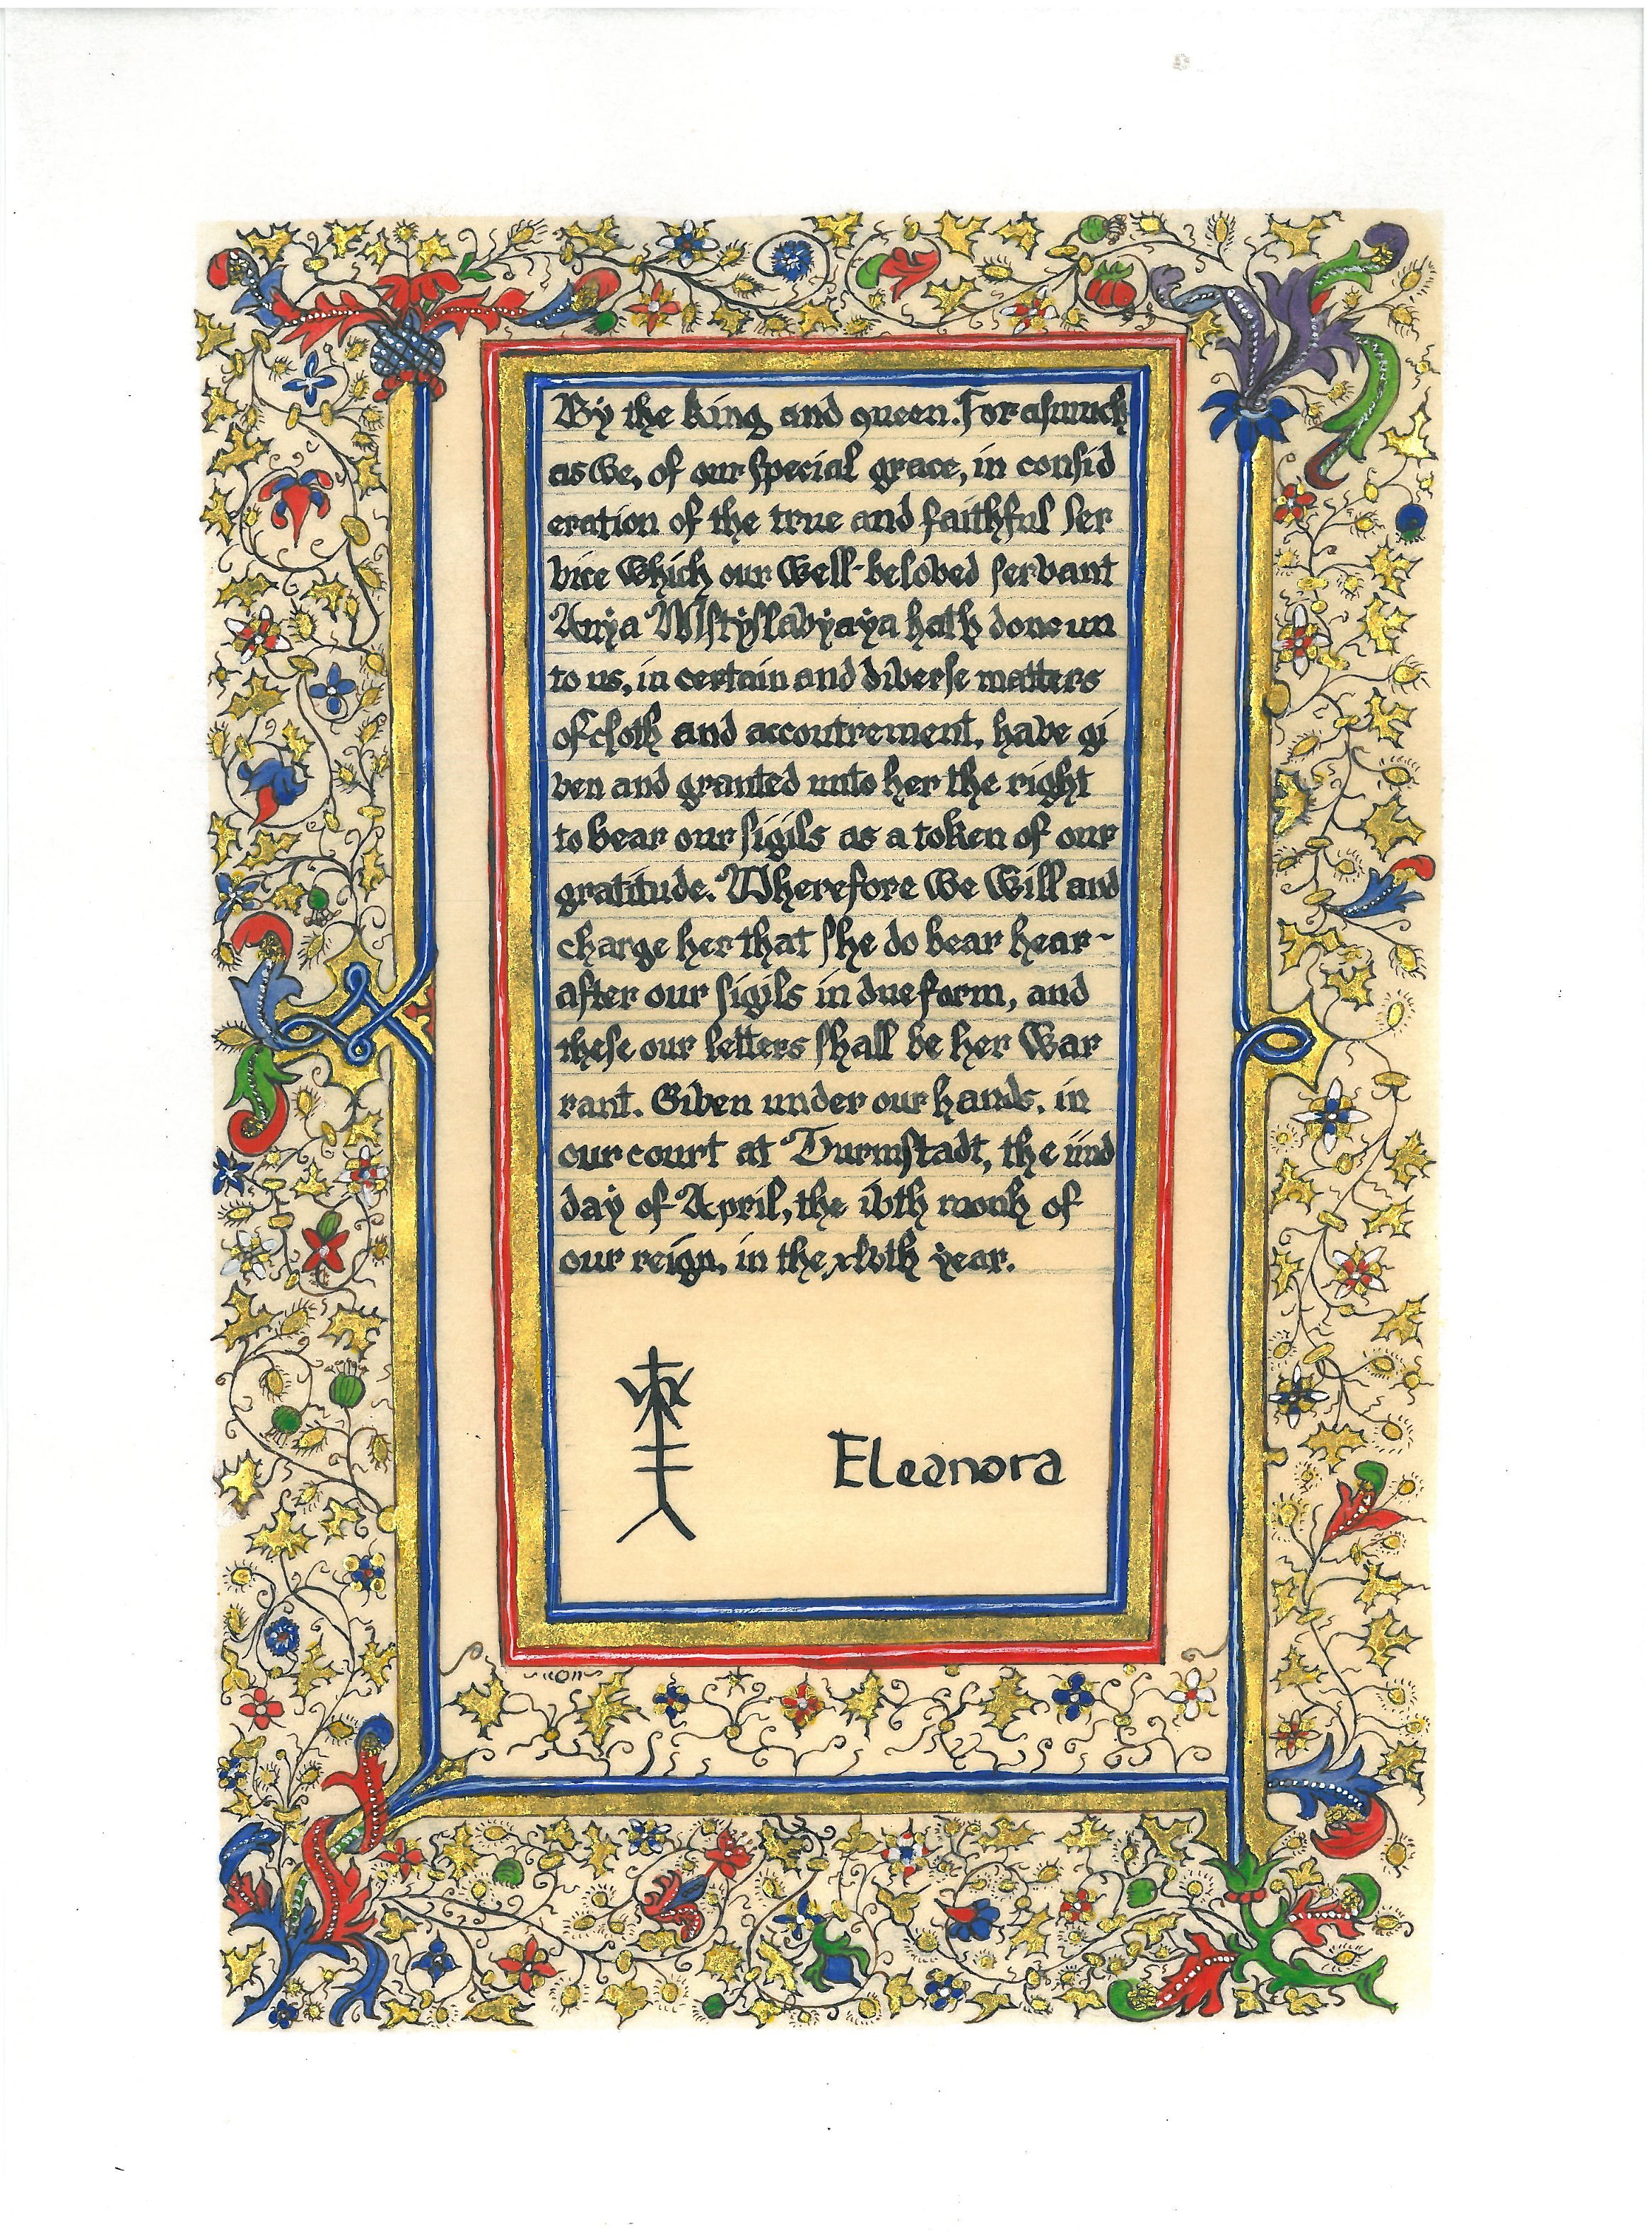 By the King and queen. Forasmuch
as We, of our special grace, in consid
eration of the true and faithful ser
vice Which our Well-beloved servant
Anya Mstyslavyaya hath done un
to us, in certain and diverse matters
of cloth and accoutrement, have gi
ven and granted unto her the right
to bear our sigils as a token of our
gratitude. Wherefore We Will and
charge her that she do bear hear-
after our sigils in due form, and
these our letters shall be her War
rant. Given under our hands, in
our court at Turmstadt, the iind
day of April, the ivth monh of
our reign, in the xlvth year.
Eleanora